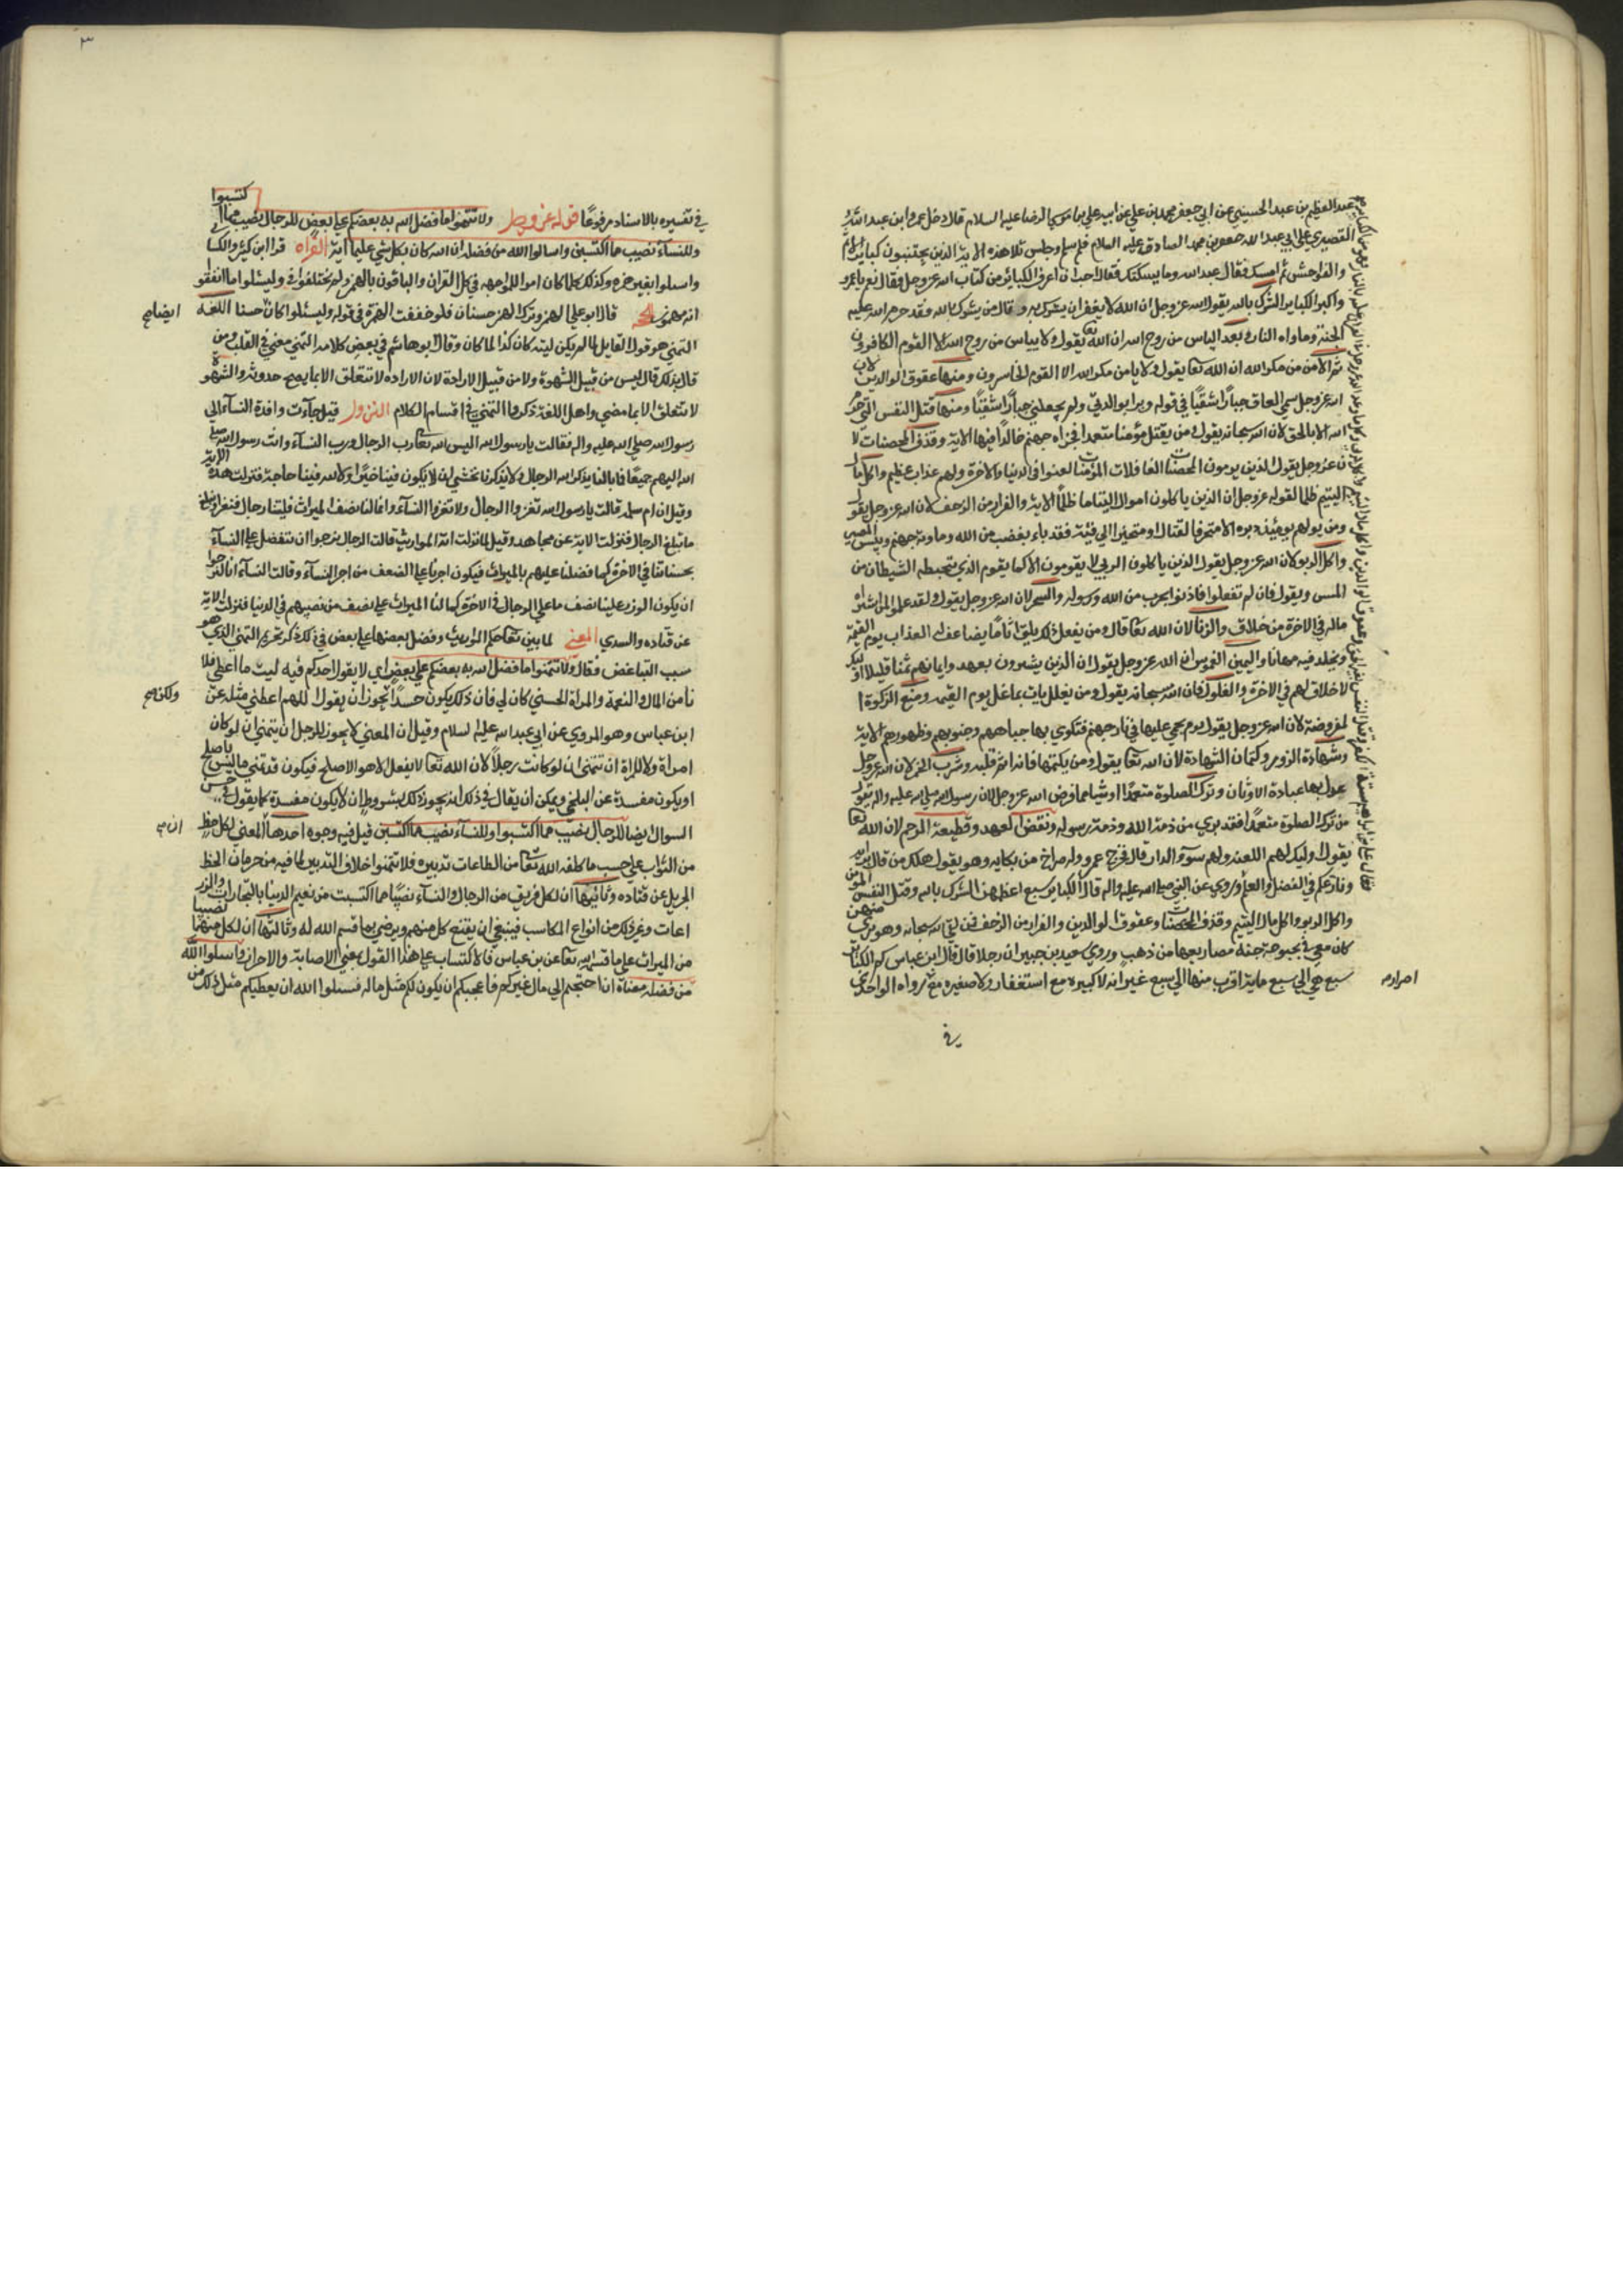 عبد العظيم بن عبد الله الحسيني عن ابي جعفر محمد بن علي عن ابيه علي بن موسي الرضا عليه السلام قال دخل عمرو بن عبيد
البصري علي ابي عبد الله جعفر بن محمد الصادق عليه السلام فلما سلم وجلس تلا هذه الاية الذين يجتنبون كبائر الاثم
والفواحش ثم امسك فقال ابو عبد الله وما يسكتك فقال احب ان اعرف الكبائر من كتاب الله عز وجل فقال نعم يا عمرو
واكبر الكبائر الشرك بالله يقول الله عز وجل ان الله لا يغفر ان يشرك به وقال من يشرك بالله فقد حرم الله عليه
الجنة وماواه النار وبعده الياس من روح الله ان الله تعا يقول ولا يياس من روح الله الا القوم الكافرون
ثم الامن من مكر الله ان الله تعا يقول ولا يامن مكر الله الا القوم الخاسرون ومنها عقوق الوالدين لان
الله عز وجل سمي العاق جبارا شقيا في قوله وبرا بوالدتي ولم يجعلني جبارا شقيا ومنها قتل النفس التي حرم
الله الا بالحق لان الله سبحانه يقول ومن يقتل مؤمنا متعمدا فجزاه جهنم خالدا فيها الاية وقذف المحصنات لا
ن عز وجل يقول الذين يرمون المحصنات الغافلات المؤمنات لعنوا في الدنيا والاخرة ولهم عذاب عظيم واكل مال
اليتيم ظلما لقوله عز وجل ان الذين ياكلون اموال اليتاما ظلما الاية والفرار من الزحف لان الله عز وجل يقول
ومن يولهم يومئذ دبره الا متحرفا لقتال او متحيزا الي فئة فقد باء بغضب من الله وماويه جهنم وبئس المصير
واكل الربو لان الله عز وجل يقول الذين ياكلون الربي لا يقومون الا كما يقوم الذي يتخبطه الشيطان من
المس ويقول فان لم تفعلوا فاذنوا بحرب من الله ورسوله والسحر لان الله عز وجل يقول ولقد علموا لمن اشتراه
ماله في الاخرة من خلاق والزنا لان الله تعا قال ومن يفعل ذلك يلق اثاما يضاعف له العذاب يوم القيمة
ويخلد فيه مهانا واليمين الغموس ان الله عز وجل يقول ان الذين يشترون بعهد وايمانهم ثمنا قليلا اوليك
لا خلاق لهم في الاخرة والغلول فان الله سبحانه يقول ومن يغلل يات بما غل يوم القيمة ومنع الزكوة ا
لمفروضة لان الله عز وجل يقول يوم يحمي عليها في نار جهنم فتكوي بها جباههم وجنوبهم وظهورهم الاية
وشهادة الزور وكتمان الشهادة لان الله تعا يقول ومن يكتمها فانه اثم قلبه وشرب الخمر لان الله عز وجل
عدل بها عبادة الاوثان وترك الصلوة متعمدا او شيا مما فرض الله عز وجل لان رسول الله صلي الله عليه واله يقول
من ترك الصلوة متعمدا فقد بري من ذمة الله وذمة رسوله ونقض العهد وقطيعة الرحم لان الله تعا
يقول اوليك لهم اللعنة ولهم سوء الدار قال فخرج عمرو وله صراخ من بكايه وهو يقول هلك من قال برايه
ونازعكم في الفضل والعلم وروي عن النبي صلي الله عليه واله قال الكباير سبع اعظمهن الشرك بالله وقتل النفس المؤمنة
واكل الربو واكل مال اليتيم وقذف المحصنات وعقوق الوالدين والفرار من الزحف فمن لقي الله سبحانه وهو بري منهن
كان معي في بحبوحة جنة مصاريعها من ذهب وروي سعيد بن جبير ان رجلا قال قال ابن عباس كم الكباير
سبع هي الي سبع ماية اقرب منها الي سبع غير انه لا كبيره مع استغفار ولا صغيره مع رواه الواحدي
اصرار
في
٣
في تفسيره بالاسناد مرفوعا قوله عز وجل ولا تتمنوا ما فضل الله به بعضكم علي بعض للرجال نصيب مما ا
كتسبوا
وللنساء نصيب مما اكتسبن واسالوا الله من فضله ان الله كان بكل شي عليما اية القراه قرا ابن كثير والكسا
واسلوا بغير همزه وكذلك كلما كان امرا للمواجهه في كل القران والباقون بالهمز ولم يختلفوا في وليسئلوا ما انفقوا
انه مهموز الحجه قال ابو علي الهمز وترك الهمز حسنان فلو خففت الهمزة في قوله وليسئلوا كان حسنا اللغه
ايضا صح
التمني هو قول القايل لما لم يكن ليته كان كذا لما كان وقال ابو هاشم في بعض كلامه التمني معني في القلب ومن
قال بذلك قال ليس من قبيل الشهوة ولا من قبيل الارادة لان الاراده لا تتعلق الا بما يصح حدوثه والشهوة
لا تتعلق الا بما مضي واهل اللغة ذكروا التمني في اقسام الكلام النزول قيل جاءت وافدة النساء الي
رسول الله صلي الله عليه واله فقالت يا رسول الله اليس الله تعا رب الرجال ورب النساء وانت رسول الله صلي
الله اليهم جميعا فما بالنا يذكر الله الرجال ولا يذكرنا نخشي ان لا يكون فينا خيرا ولا لله فينا حاجة فنزلت هذه الاية
وقيل ان ام سلمه قالت يا رسول الله تغزوا الرجال ولا تغزوا النساء وانما لنا نصف الميراث فليتنا رجال فنغزوا ونبلغ
ما تبلغ الرجال فنزلت الاية عن مجاهد وقيل لما نزلت اية المواريث قالت الرجال نرجوا ان نتفضل علي النساء
بحسناتنا في الاخرة كما فضلنا عليهم بالميراث فيكون اجرنا علي الضعف من اجر النساء وقالت النساء انا لنرجوا
ان يكون الوزر علينا نصف ما علي الرجال في الاخرة كما لنا الميراث علي نصف من نصيبهم في الدنيا فنزلت الاية
عن قتاده والسدي المعني لما بين تعا حكم المواريث وفضل بعضها علي بعض في ذلك ذكر تحريم التمني الذي هو
سبب التباغض فقال ولا تتمنوا ما فضل الله به بعضكم علي بعض اي لا يقول احدكم فيه ليت ما اعطي فلا
نا من المال والنعمة والمراة الحسني كان لي فان ذلك يكون حسدا يجوز ان يقول اللهم اعطني مثله عن
ولكن صح
ابن عباس وهو المروي عن ابي عبد الله عليه السلام وقيل ان المعني لا يجوز للرجل ان يتمني ان لو كان
امراة ولا للمراة ان تتمني ان لو كانت رجلا لان الله تعا لا يفعل الا هو الاصلح فيكون قد تمني ما ليس باصلح
او يكون مفسدة عن البلخي ويمكن ان يقال في ذلك انه يجوز ذلك بشروط ان لا يكون مفسدة كما يقول في حسن
السوال ايضا للرجال نصيب مما اكتسبوا وللنساء نصيب مما اكتسبن قيل فيه وجوه احدها المعني لكل حظ
ان
من الثواب علي حسب ما كلفه الله تعا من الطاعات تدبيره فلا تتمنوا خلاف التدبير لما فيه من حرمان الحظ
الجزيل عن قتاده وثانيها ان لكل فريق من الرجال والنساء نصيبا مما اكتسبت من نعيم الدنيا بالتجارات والزر
اعات وغير ذلك من انواع المكاسب فينبغي ان يقنع كل منهم ويرضي بما قسم الله له وثالثها ان لكل منهما نصيبا
من الميراث علي ما قسمه الله تعا عن بن عباس فالاكتساب علي هذا القول بمعني الاصابة والاحراز واسلوا الله
من فضله معناه ان احتجتم الي مال غيركم فاعجبكم ان يكون لكم مثل ماله فسلوا الله ان يعطيكم مثل ذلك من